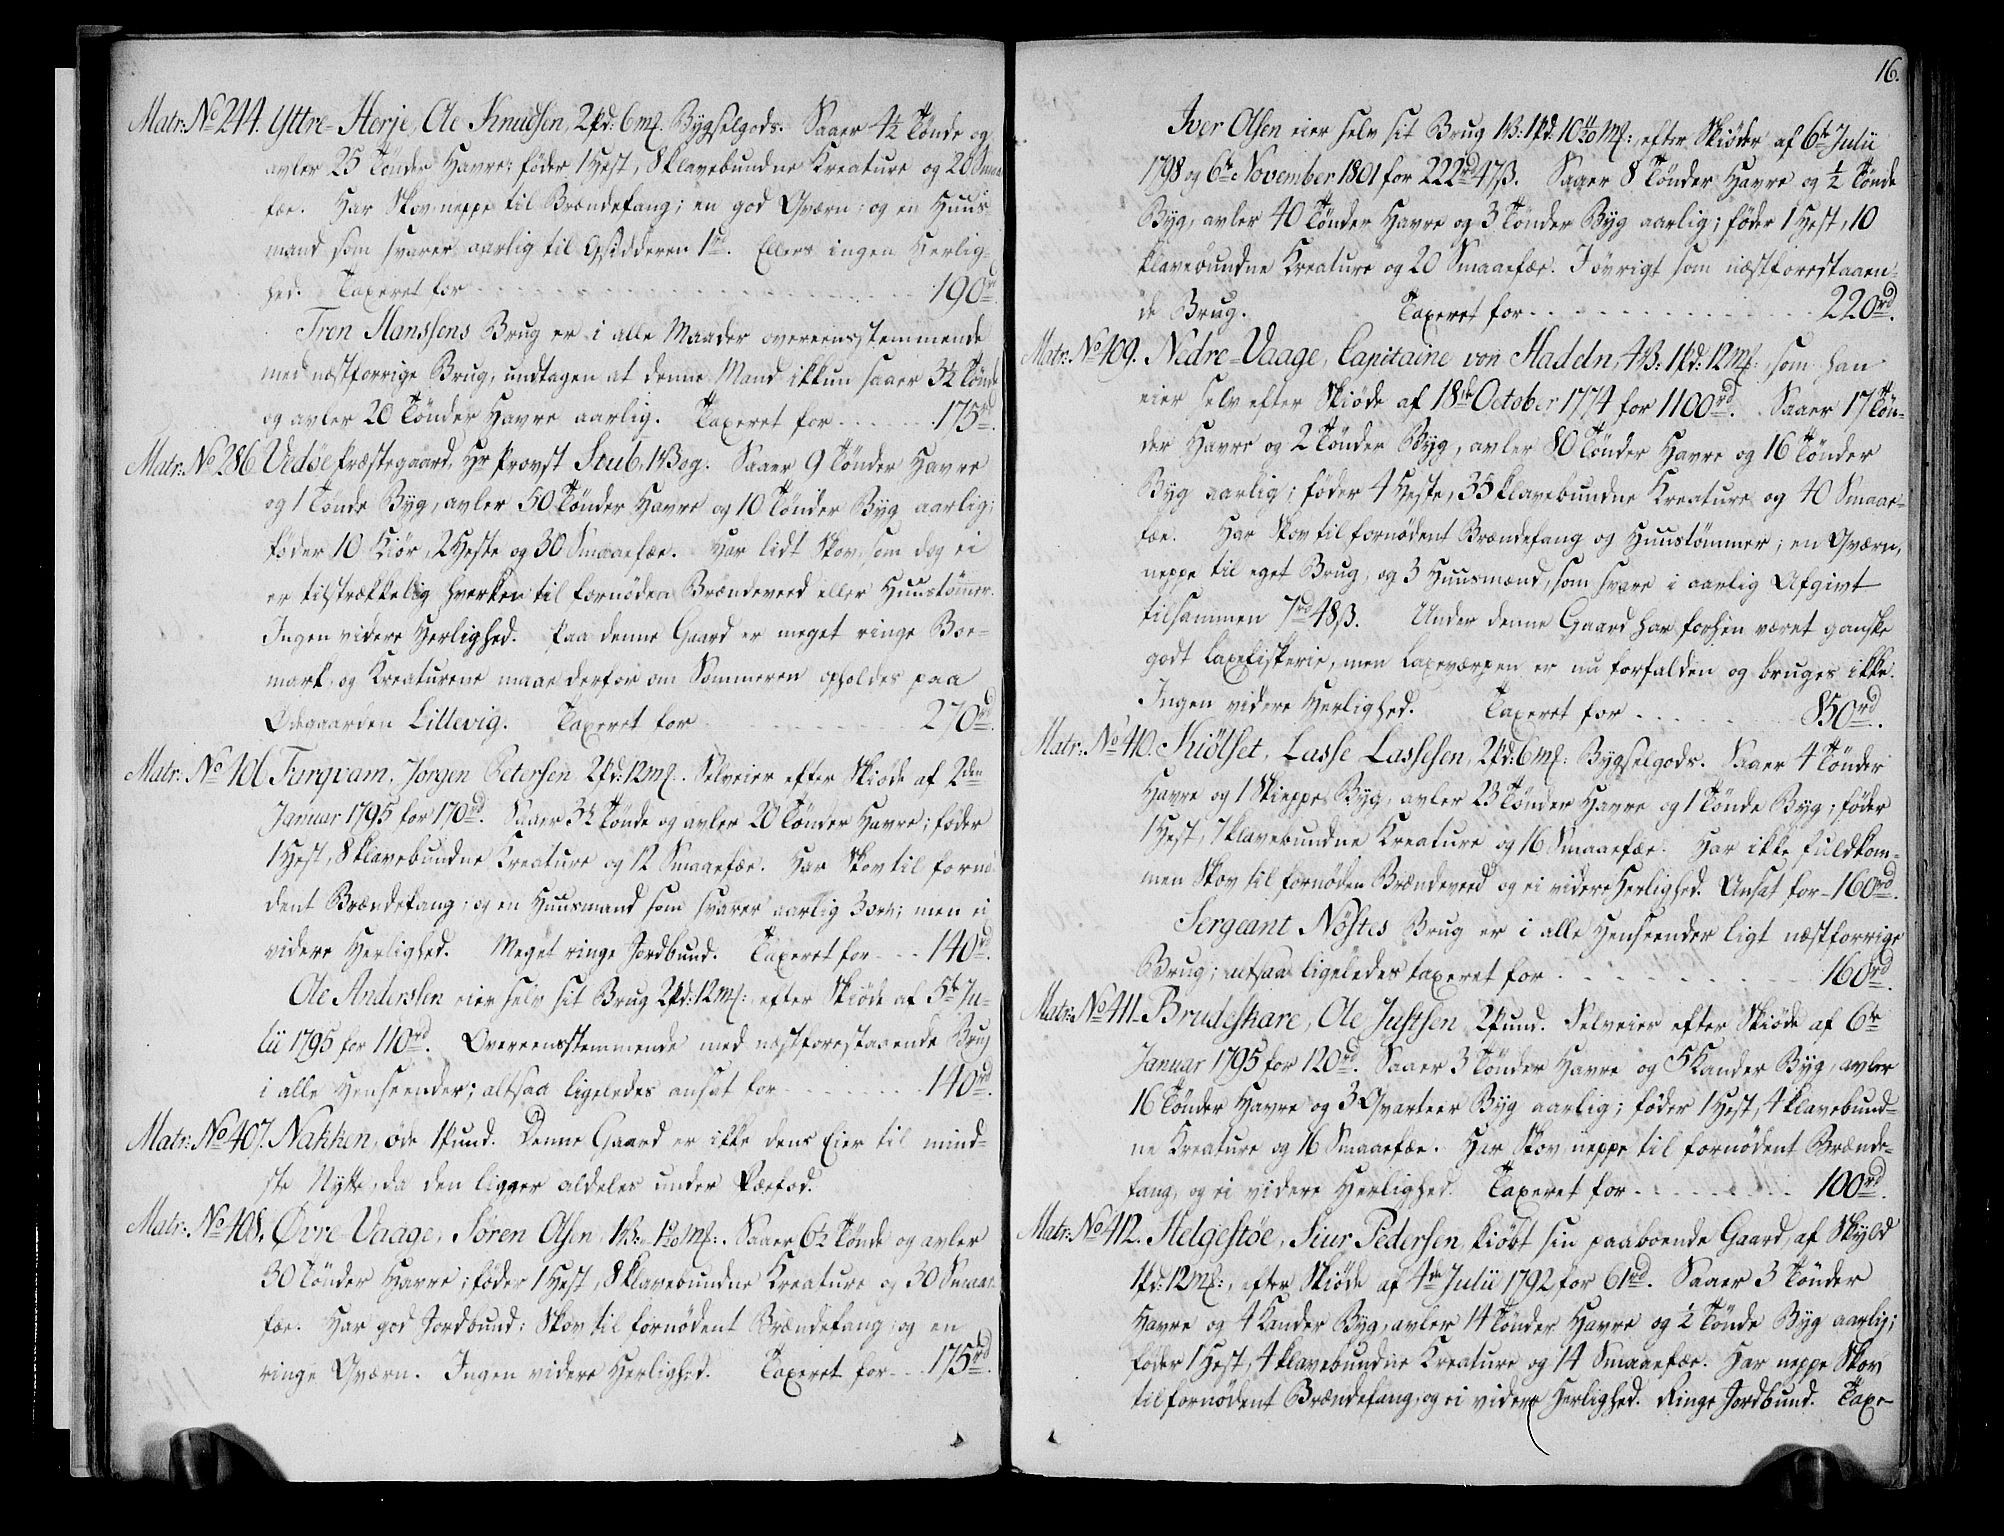 Matr: No 244. Yttre-Herje, Ole Knudsen, 2 Pd: 6 mk. Bygselgods. Saaer 4½ Tønde og
avler 25 Tønder Havre; føder 1 Hest, 8 klavebundne Kreature og 20 Smaa-
fæe. Har Skov neppe til Brændefang; en god Qværn; og en Huus-
mand som svarer aarlig til Opsidderen 1 rd. Ellers ingen Herlig-
hed. Taxeret for 190 rd.
Tren Hanssens Brug er i alle Maader overeensstemmende
med næstforrige Brug, undtagen at denne Mand ikkun saaer 3½ Tønde
og avler 20 Tønder Havre aarlig. Taxeret for 175 rd.
Matr: No 286. Vedøe Præstegaard, Hr Provst Stub, 1 Vog. Saaer 9 Tønder Havre
og 1 Tønde Byg, avler 50 Tønder Havre og 10 Tønder Byg aarlig;
føder 10 Kiør, 2 Heste og 30 Smaaefæe. Har lidt Skov, som dog ei
er tilstrækkelig hverken til fornøden Brændeveed eller Huustømmer.
Ingen videre Herlighed. Paa denne Gaard er meget ringe Boe-
mark, og Kreaturene maae derfor om Sommeren opholdes paa
Ødegaarden Lillevig. Taxeret for 270 rd.
Matr: No 406. Turqvam, Jørgen Petersen, 2 Pd: 12 mk: Selveier efter Skiøde af 2den
Januar 1795 for 170 rd. Saaer 3½ Tønde og avler 20 Tønder Havre; føder
1 Hest, 8 klavebundne Kreature og 12 Smaaefæe. Har Skov til fornø-
dent Brændefang; og en Huusmand som svarer aarlig 3 ort; men ei
videre Herlighed. Meget ringe Jordbund. Taxeret for 140 rd.
Ole Anderssen eier selv sit Brug 2 Pd: 12 mk: efter Skiøde af 5te Ju-
lii 1795 for 110 rd. Overeensstemmende med næstforestaaende Brug
i alle Henseender; altsaa ligeledes ansat for 140 rd.
Matr: No 407. Nakken, øde 1 Pund. Denne Gaard er ikke dens Eier til mind-
ste Nytte, da den ligger aldeles under Fæefod.
Matr: No 408. Øvre-Vaage, Søren Olsen, 1 V: mk: Saaer 6½ Tønde og avler
30 Tønder Havre; føder 1 Hest, 8 klavebundne Kreature og 30 Smaae-
fæe. Har god Jordbund; Skov til fornødent Brændefang; og en
ringe Qværn. Ingen videre Herlighed. Taxeret for 175 rd.
16.
Iver Olsen eier selv sit Brug 1 V: 1 Pd: mk: efter Skiøder af 6te Julii
1798 og 6te November 1801 for 222 rd 47 ß. Saaer 8 Tønder Havre og ½ Tønde
Byg, avler 40 Tønder Havre og 3 Tønder Byg aarlig; føder 1 Hest, 10
klavebundne Kreature og 20 Smaaefæe. I øvrigt som næstforestaaen-
de Brug. Taxeret for 220 rd.
Matr: No 409. Nedre-Vaage, Capitaine von Hadeln, 4 V: 1 Pd: 12 mk:, som han
eier selv efter Skiøde af 18de October 1774 for 1100 rd. Saaer 17 Tøn-
der Havre og 2 Tønder Byg, avler 80 Tønder Havre og 16 Tønder
Byg aarlig; føder 4 Heste, 35 klavebundne Kreature og 40 Smaae-
fæe. Har Skov til fornødent Brændefang og Huustømmer; en Qværn,
neppe til eget Brug; og 3 Huusmænd, som svare i aarlig Afgivt
tilsammen 7 rd 48 ß. Under denne Gaard har forhen været ganske
godt Laxefiskerie, men Laxeværpen er nu forfalden og bruges ikke.
Ingen videre Herlighed. Taxeret for 850 rd.
Matr: No 410. Kiølset, Lasse Lassesen, 2 Pd: 6 mk: Bygselgods. Saaer 4 Tønder
Havre og 1 Skieppe Byg, avler 23 Tønder Havre og 1 Tønde Byg; føder
1 Hest, 7 klavebundne Kreature og 16 Smaaefæe. Har ikke fuldkom-
men Skov til fornøden Brændeveed og ei videre Herlighed. Ansat for 160 rd.
Sergeant Nøstes Brug er i alle Henseender ligt næstforrige
Brug; altsaa ligeledes taxeret for 160 rd.
Matr: No 411. Brudeskare, Ole Justsen, 2 Pund. Selveier efter Skiøde af 6te
Januar 1795 for 120 rd. Saaer 3 Tønder Havre og 5 Kander Byg, avler
16 Tønder Havre og 3 Qvarteer Byg aarlig; føder 1 Hest, 4 klavebund-
ne Kreature og 16 Smaaefæe. Har Skov neppe til fornødent Brænde-
fang, og ei videre Herlighed. Taxeret for 100 rd.
Matr: No 412. Helgestøe, Siur Pedersen, kiøbt sin paaboende Gaard, af Skyld
1 Pd: 12 mk:, efter Skiøde af 4de Julii 1792 for 61 rd. Saaer 3 Tønder
Havre og 4 Kander Byg, avler 14 Tønder Havre og ½ Tønde Byg aarlig;
føder 1 Hest, 4 klavebundne Kreature og 14 Smaaefæe. Har neppe Skov
til fornødent Brændefang, og ei videre Herlighed. Ringe Jordbund. Taxe-